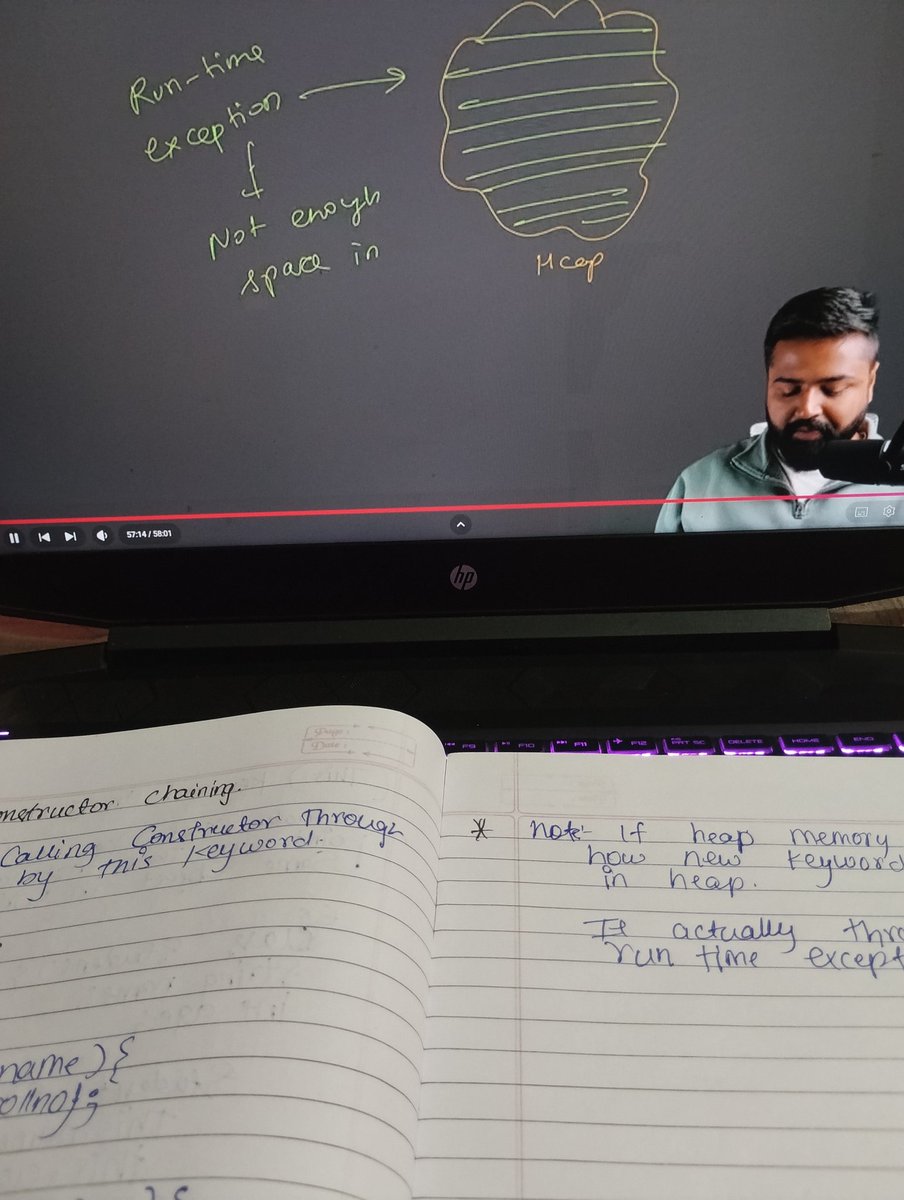 Run-time
exception
Not enough
space in
Heap
57:14 / 58:01
hp
F9 F10 F11 F12 PRT SC DELETE HOME END
Page:
Date:
nstructor chaining.
Calling Constructor Through
by this keyword.
name){
ollno);
* Note:- If heap memory
how new keyword
in heap.
It actually thro
run time except